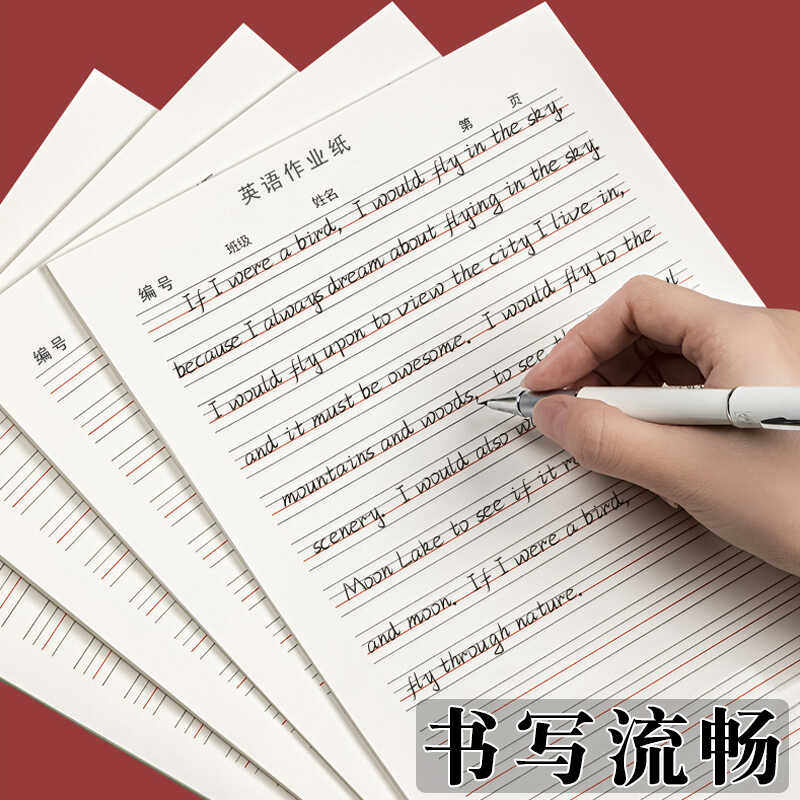 第 页
英语作业纸
班级 姓名
编号
If I were a bird, I would fly in the sky,
because I always dream about flying in the sky.
I would fly upon to view the city I live in,
and it must be awesome. I would fly to the
mountains and woods, to see the
scenery. I would also
Moon Lake to see if it
and moon. If I were a bird,
fly through nature.
编号
书写流畅